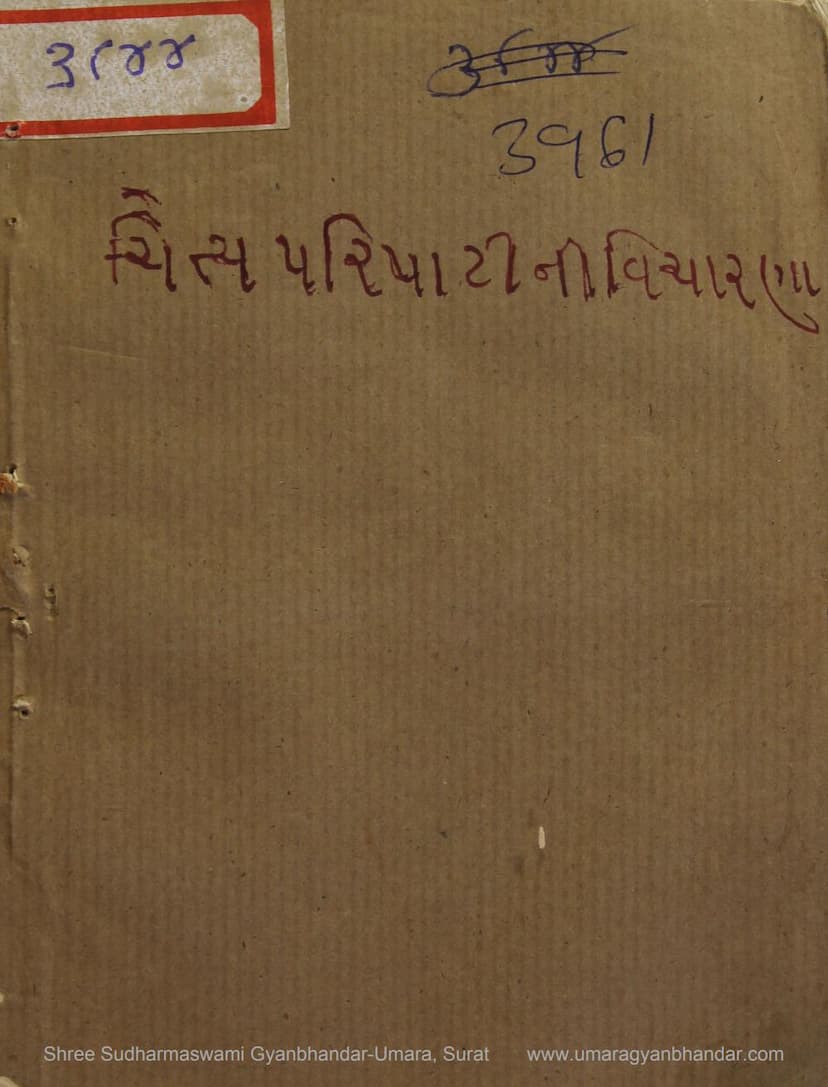 ૩૮૪૪
૩૮૪૪
૩૧૬/
ચૈત્ય પરિપાટીની વિચારણા
Shree Sudharmaswami Gyanbhandar-Umara, Surat www.umaragyanbhandar.com